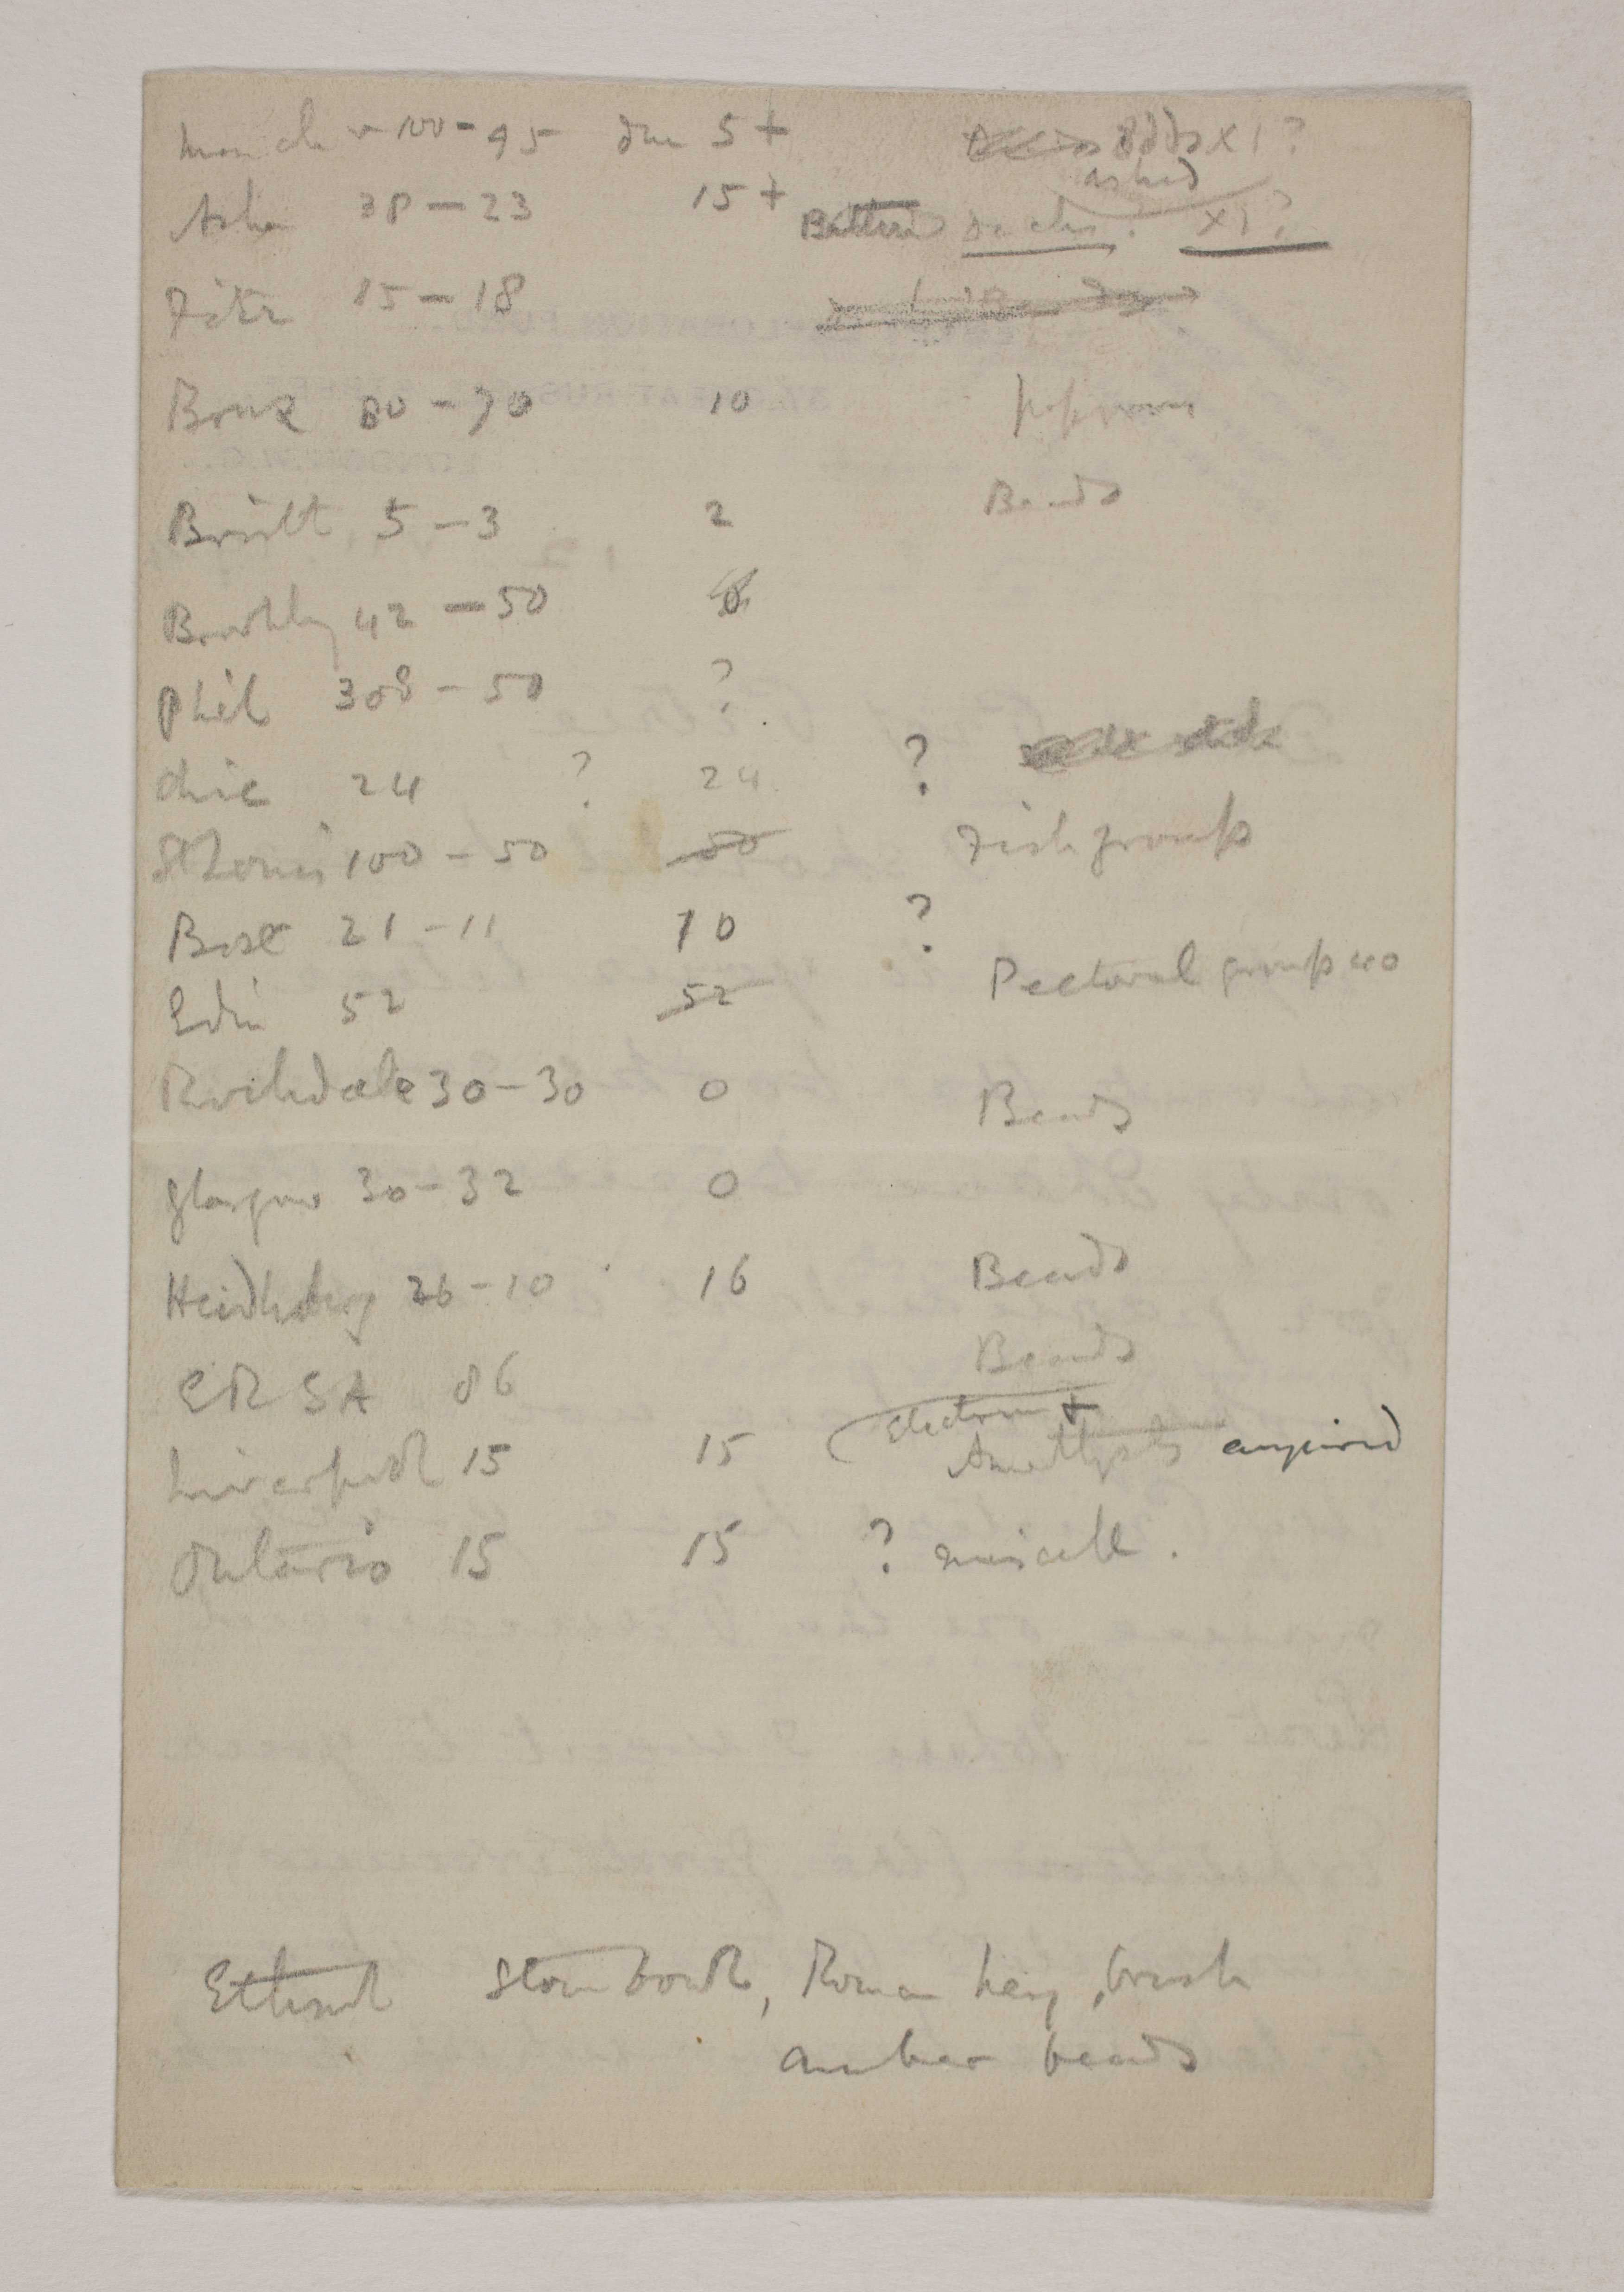 Manch 100 - 95 due 5 + Odds XI ?
asked
Ash 38 - 23 15 + Battered ducks ? XI ?
Fitz 15 - 18
Brux 80 - 70 10
Bristt 5 - 3 2 Beads
42 - 50
Phil 308 - 50 ?
Chic 24 ? 24 ?
St Louis 100 - 50 50 Fish groups
Bost 21 - 11 10 ?
Edin 52 52 Pectoral group 40
Rochdale 30 - 30 0 Beads
Glasgow 30 - 32 0
Heidlberg 26 - 10 16 Beads
ERSA 86 Beads
Electrum +
Liverpool 15 15 Amethysts acquired
Ontario 15 15 ? miscell.
Ethnol Stone bowls, Roman key, brush
amber beads